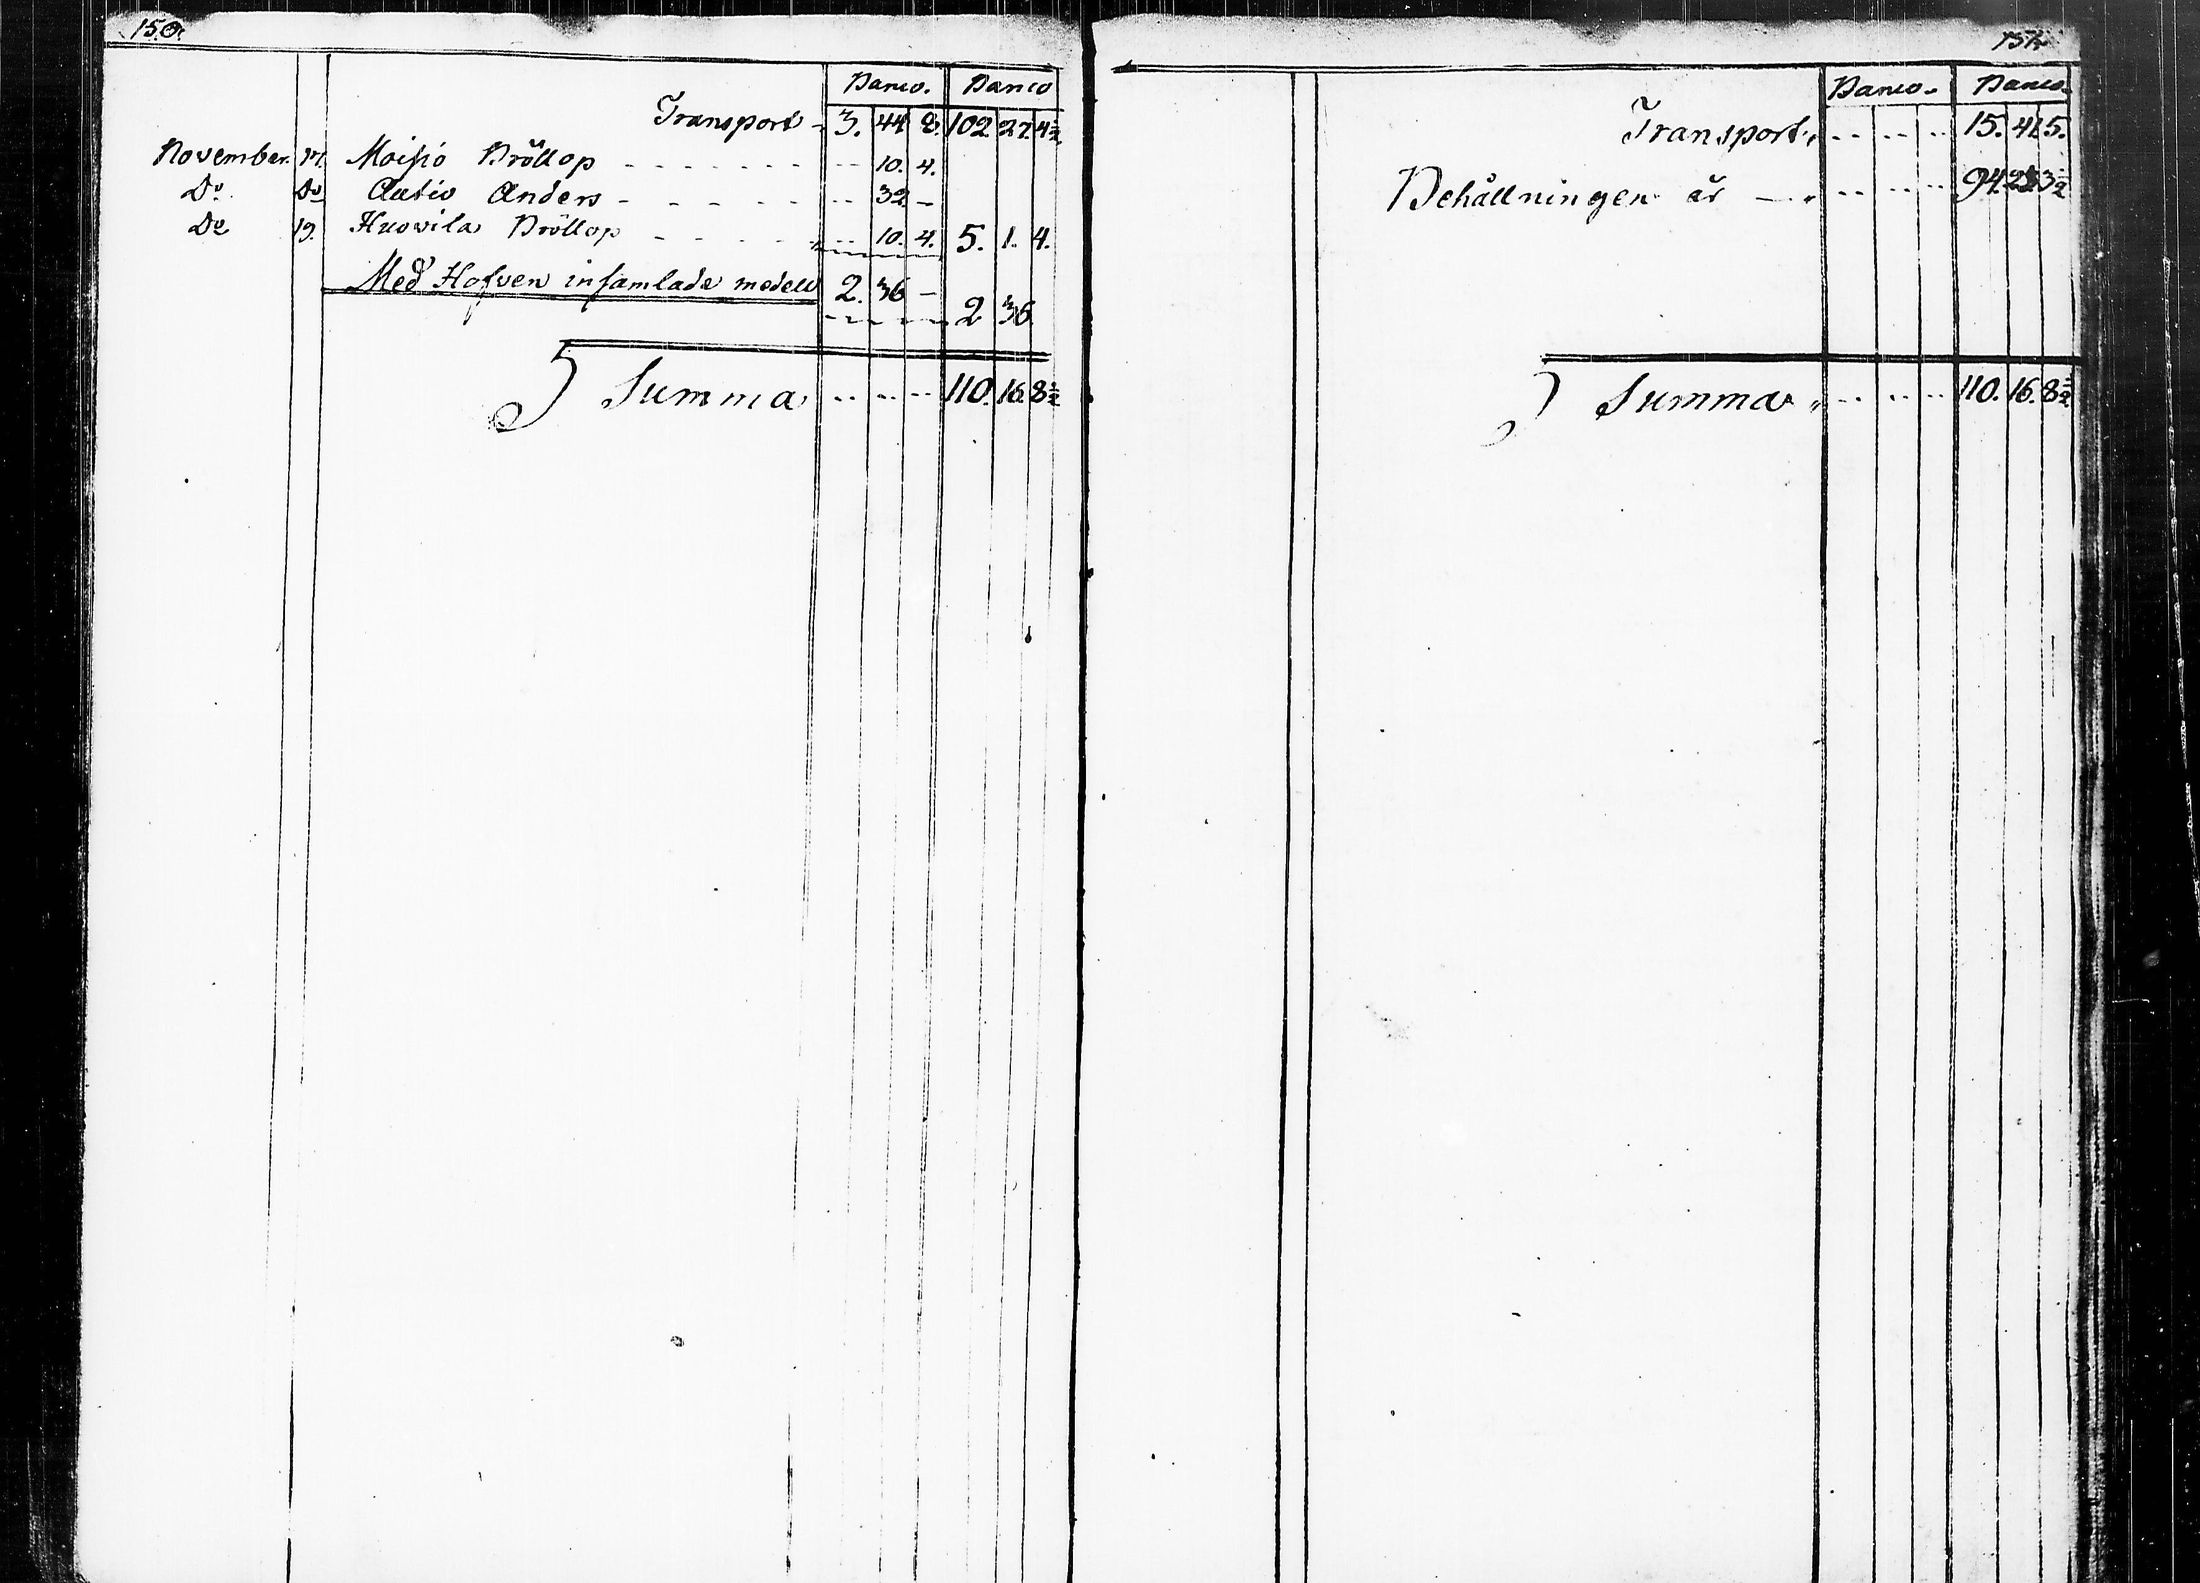 150.
Banco. Banco
Transport 3. 44 8. 102 27. 4½
November 17. Moisio Bröllop 10. 4.
Do. Do Autio Anders 32 –
Do 19. Huovila Bröllop 10. 4. 5. 1. 4.
Med Hofven insamlade medell 2. 36 – 2 36
Summa 110. 16. 8½
151.
Banco. Banco.
Transport 15. 41 5.
Behållningen är 94. 23 3½
Summa 110. 16. 8½